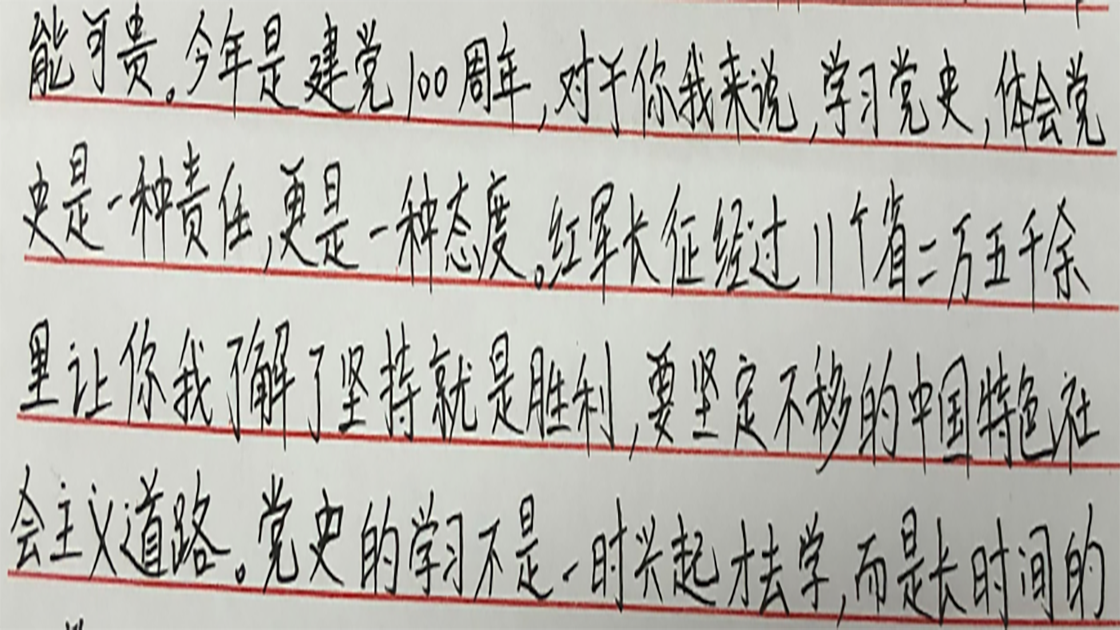 能可贵。今年是建党100周年,对于你我来说,学习党史,体会党
史是一种责任,更是一种态度。红军长征经过11个省二万五千余
里让你我了解了坚持就是胜利,要坚定不移的中国特色社
会主义道路。党史的学习不是一时兴起才去学,而是长时间的